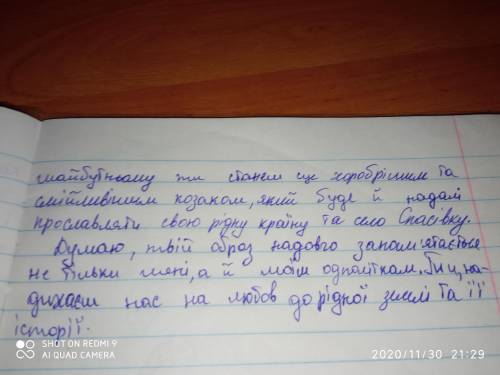 майбутньому ти станеш ще хоробрішим та
смійливішим козаком, який буде й надалі
прославляти свою рідну країну та село Спасівку.
Думаю, твій образ надовго запам'ятається
не тільки мені, а й моїм одноліткам. Ти, на-
дихаєш нас на любов до рідної землі та її
історії.
SHOT ON REDMI 9
AI QUAD CAMERA
2020/11/30 21:29